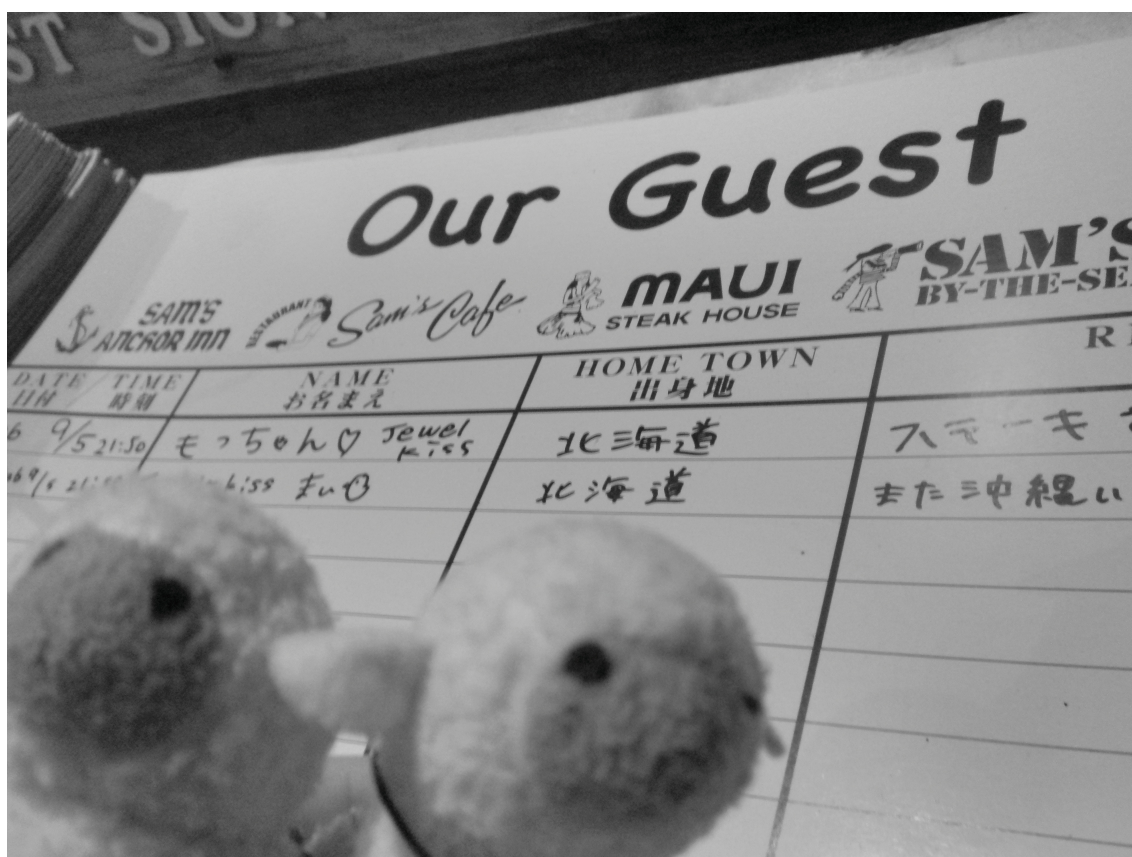 ST SIGN
Our Guest
SAM'S ANCHOR INN
RESTAURANT Sam's Cafe
MAUI STEAK HOUSE
SAM'S BY-THE-SEA
DATE/TIME NAME HOME TOWN R
日付 時刻 お名まえ 出身地
6 9/5 21:50 もっちゃん♡ Jewel kiss 北海道 ステーキ
kiss まい 北海道 また沖縄い